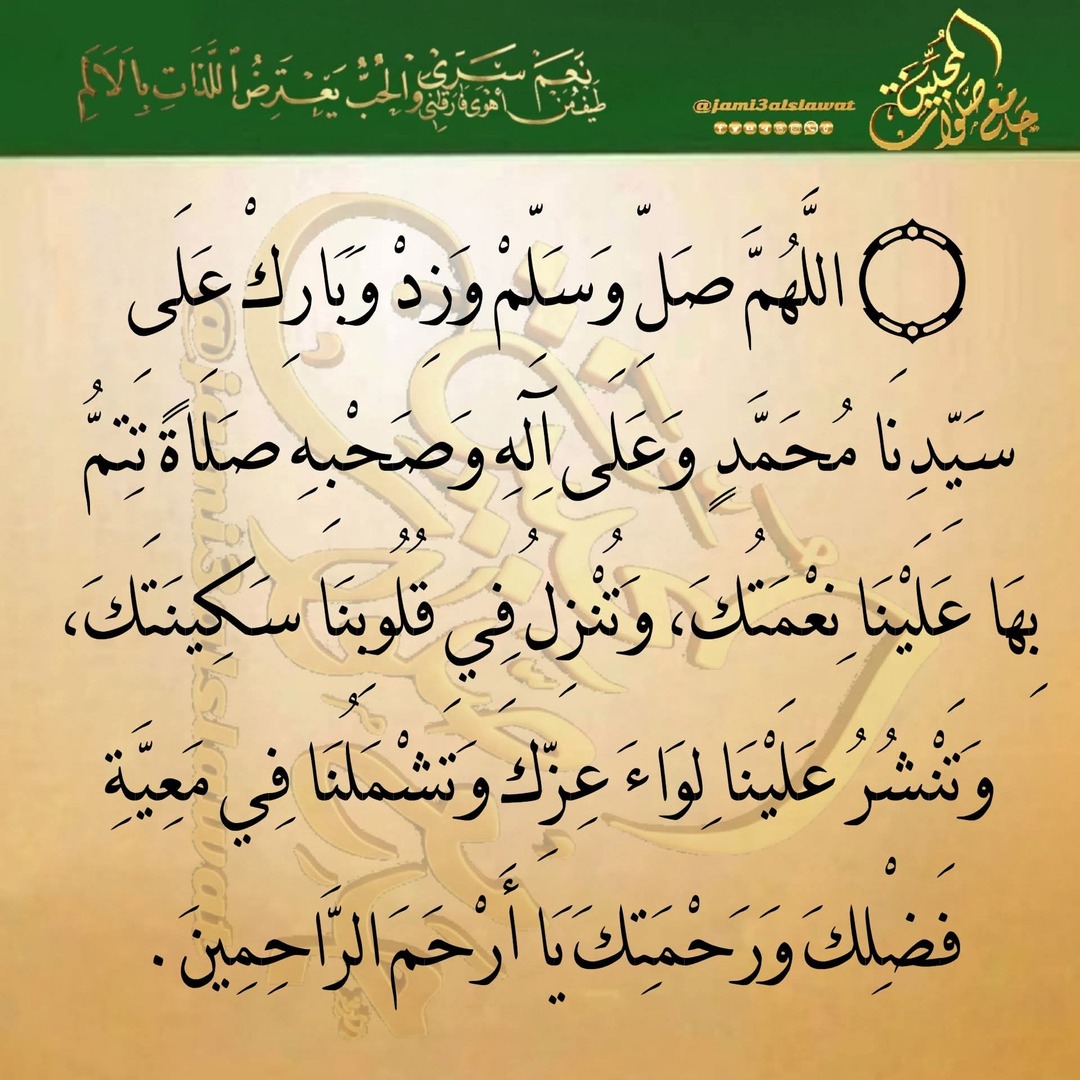 نَعَمْ سَرَىٰ طَيْفُ مَنْ أَهْوَىٰ فَأَرَّقَنِي وَالْحُبُّ يَعْتَرِضُ اللَّذَّاتِ بِالْأَلَمِ
جامع صلوات المحبين
@jami3alslawat
اللَّهُمَّ صَلِّ وَسَلِّمْ وَزِدْ وَبَارِكْ عَلَى
سَيِّدِنَا مُحَمَّدٍ وَعَلَى آلِهِ وَصَحْبِهِ صَلَاةً تَتِمُّ
بِهَا عَلَيْنَا نِعْمَتُكَ، وَتُنْزِلُ فِي قُلُوبِنَا سَكِينَتَكَ،
وَتَنْشُرُ عَلَيْنَا لِوَاءَ عِزِّكَ وَتَشْمَلُنَا فِي مَعِيَّةِ
فَضْلِكَ وَرَحْمَتِكَ يَا أَرْحَمَ الرَّاحِمِينَ .
@jami3alslawat